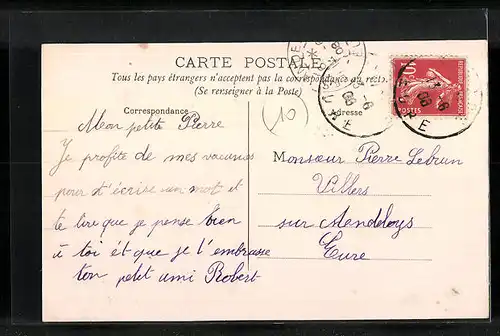 CARTE POSTALE
Tous les pays étrangers n'acceptent pas la correspondance au recto
(Se renseigner à la Poste)
Correspondance
Adresse
10
POSTES
EURE
(10)
Mon petit Pierre
Je profite de mes vacances
pour t'écrire un mot et
te dire que je pense bien
à toi ét que je t'embrasse
ton petit ami Robert
Monsieur Pierre Lebrun
Villers
sur
Eure